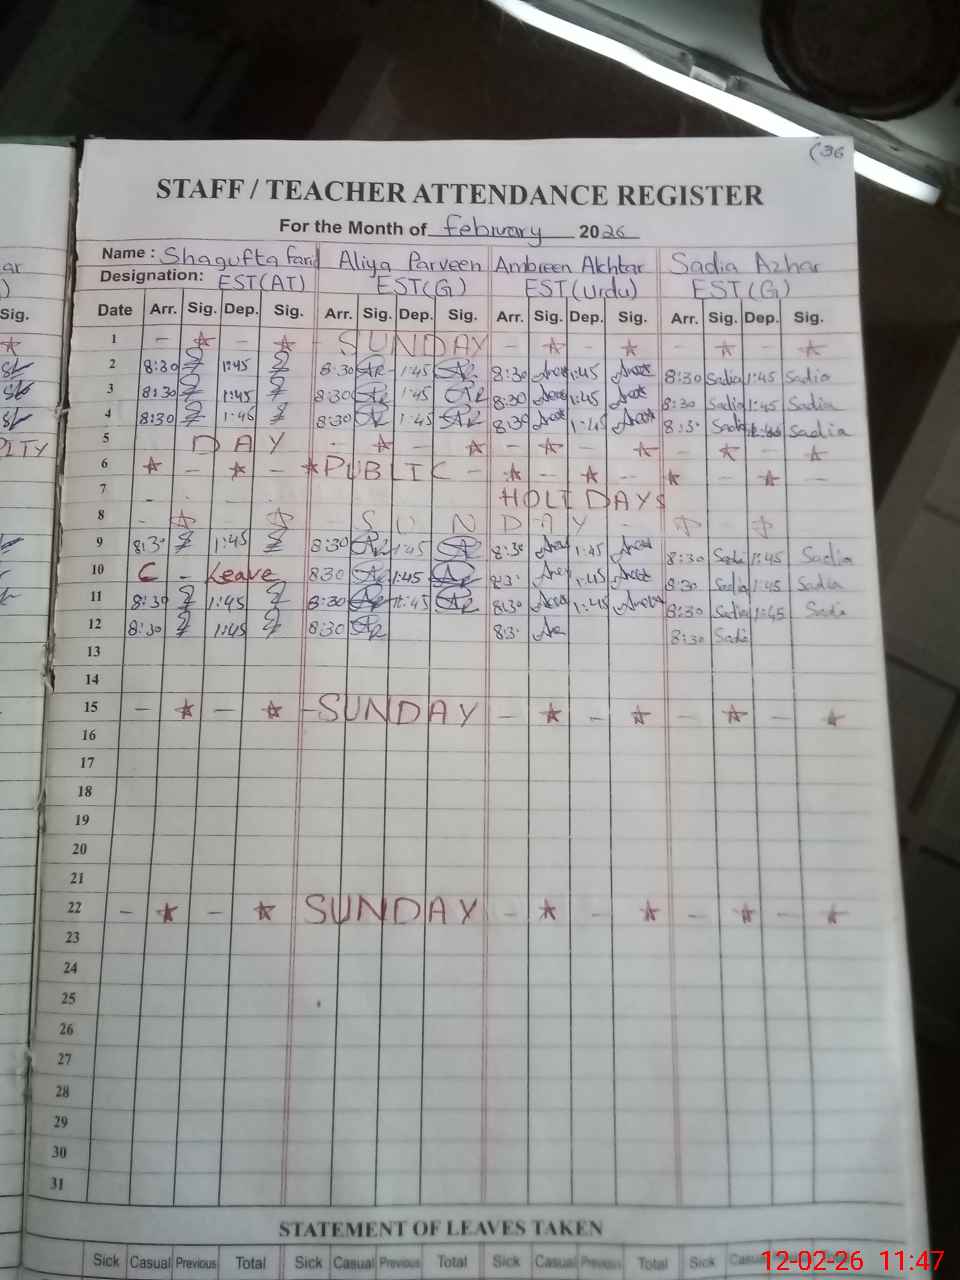 (36
STAFF / TEACHER ATTENDANCE REGISTER
For the Month of February 2026
Name : Shagufta Farid Aliya Parveen Ambreen Akhtar Sadia Azhar
Designation: EST(AT) EST(G) EST(Urdu) EST(G)
Date Arr. Sig. Dep. Sig. Arr. Sig. Dep. Sig. Arr. Sig. Dep. Sig. Arr. Sig. Dep. Sig.
1 SUNDAY
2 8:30 1:45 8:30 1:45 8:30 1:45 8:30 Sadia 1:45 Sadia
3 8:30 1:45 8:30 1:45 8:30 1:45 8:30 Sadia 1:45 Sadia
4 8:30 1:45 8:30 1:45 8:30 1:45 8:30 Sadia Sadia
5 DAY
6 PUBLIC
7 HOLIDAYS
8 SUNDAY
9 8:30 1:45 8:30 1:45 8:30 1:45 8:30 Sadia 1:45 Sadia
10 C - Leave 8:30 1:45 8:30 1:45 8:30 Sadia 1:45 Sadia
11 8:30 1:45 8:30 1:45 8:30 1:45 8:30 Sadia 1:45 Sadia
12 8:30 1:45 8:30 8:30 8:30 Sadia
13
14
15 SUNDAY
16
17
18
19
20
21
22 SUNDAY
23
24
25
26
27
28
29
30
31
STATEMENT OF LEAVES TAKEN
Sick Casual Previous Total Sick Casual Previous Total Sick Casual Previous Total Sick Casual
12-02-26 11:47